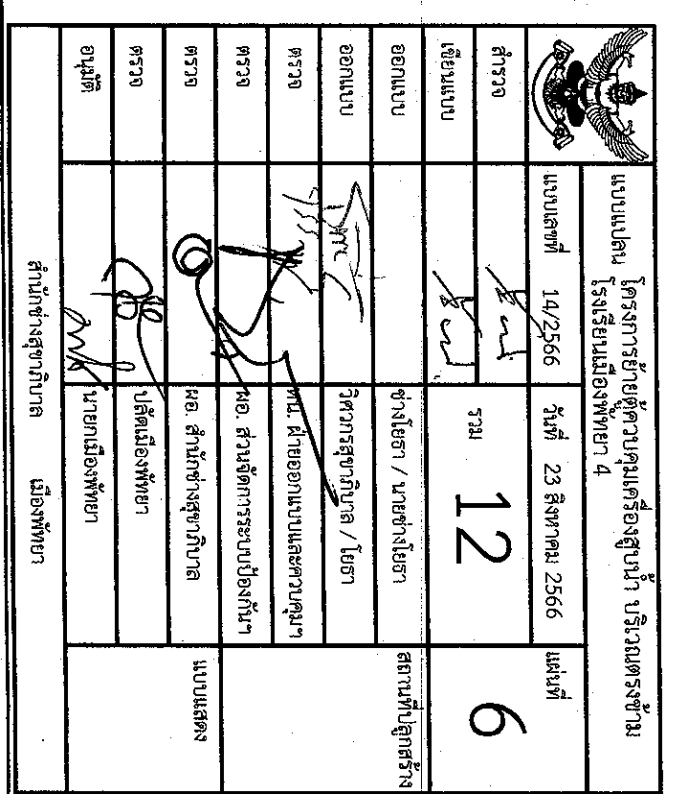 แบบแปลน โครงการย้ายตู้ควบคุมเครื่องสูบน้ำ บริเวณตรงข้าม
โรงเรียนเมืองพัทยา 4
แบบเลขที่ 14/2566 วันที่ 23 สิงหาคม 2566 แผ่นที่
สำรวจ รวม 12 6
เขียนแบบ
ออกแบบ ช่างโยธา / นายช่างโยธา สถานที่ปลูกสร้าง
ออกแบบ วิศวกรสุขาภิบาล / โยธา
ตรวจ หน. ฝ่ายออกแบบและควบคุมฯ
ตรวจ ผอ. ส่วนจัดการระบบป้องกันฯ
ตรวจ ผอ. สำนักช่างสุขาภิบาล แบบแสดง
ตรวจ ปลัดเมืองพัทยา
อนุมัติ นายกเมืองพัทยา
สำนักช่างสุขาภิบาล เมืองพัทยา